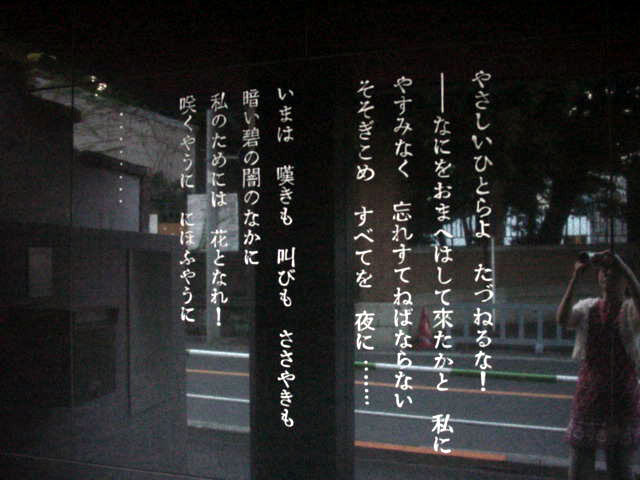 やさしいひとらよ　たづねるな！
──なにをおまへはして來たかと　私に
やすみなく　忘れすてねばならない
そそぎこめ　すべてを　夜に……
いまは　嘆きも　叫びも　ささやきも
暗い碧の闇のなかに
私のためには　花となれ！
咲くやうに　にほふやうに
………